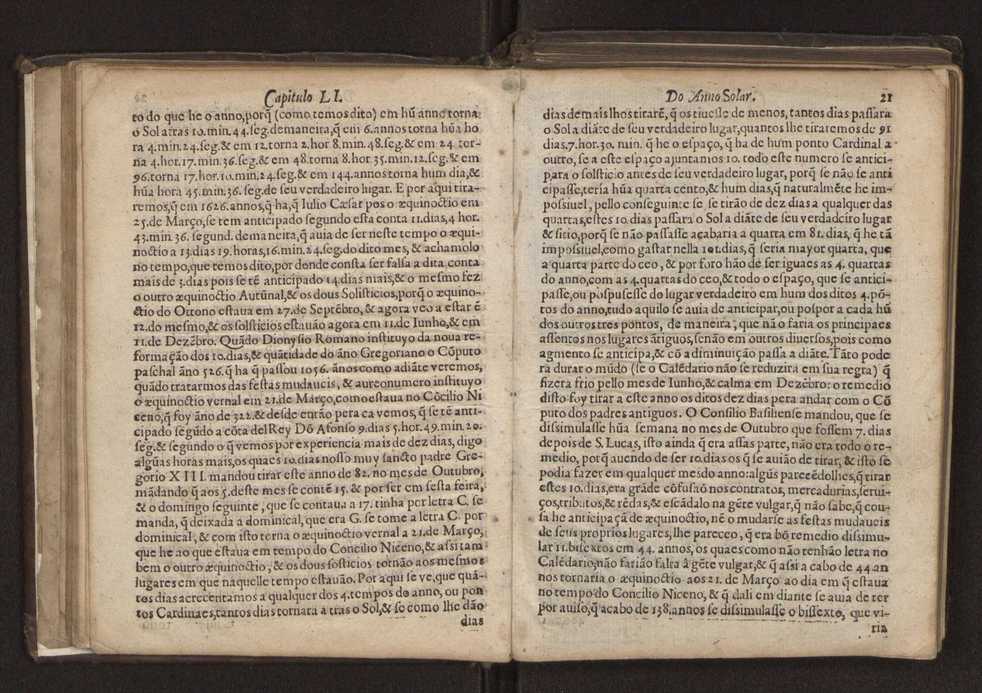 Capitulo LI.
to do que he o anno, porq̃ (como temos dito) em hũ anno torna
o Sol atras 10. min. 44. seg. de maneira, q̃ em 6. annos torna hũa ho
ra 4. min. 24. seg. & em 12. torna 2. hor 8. min. 48. seg. & em 24 tor-
na 4. hor. 17. min. 36. seg. & em 48. torna 8. hor. 35. min. 12. seg. & em
96. torna 17. hor. 10. min. 24. seg. & em 144. annos torna hum dia, &
hũa hora 45. min. 36. seg. de seu verdadeiro lugar. E por aqui tira-
remos, q̃ em 1626. annos, q̃ ha, q̃ Iulio Cæsar pos o æquinoctio em
25. de Março, se tem anticipado segundo esta conta 11. dias, 4 hor.
43. min. 36. segund. de maneira, q̃ auia de ser neste tempo o æqui-
noctio a 13. dias 19. horas, 16. min. 24. seg. do dito mes, & achamolo
no tempo, que temos dito, por donde consta ser falsa a dita conta
mais de 3. dias pois se tẽ anticipado 14. dias mais, & o mesmo fez
o outro æquinoctio Autũnal, & os dous Solisticios, porq̃ o æquino-
ctio do Ottono estaua em 27. de Septẽbro, & agora veo a estar ẽ
12. do mesmo, & os solsticios estauão agora em 11. de Iunho, & em
11. de Dezẽbro. Quãdo Dionysio Romano instituyo da noua re-
formação dos 10. dias, & quãtidade do ãno Gregoriano o Cõputo
paschal ãno 526. q̃ ha q̃ passou 1056. ãnos como adiãte veremos,
quãdo tratarmos das festas mudaueis, & aureonumero instituyo
o æquinoctio vernal em 21. de Março, como estaua no Cõcilio Ni
ceno, q̃ foy ãno de 322. & desde então pera ca vemos, q̃ se tẽ anti-
cipado segũdo a cõta del Rey Dõ Afonso 9. dias 5. hor. 49. min. 20.
seg. & segundo o q̃ vemos por experiencia mais de dez dias, digo
algũas horas mais, os quaes 10. dias nosso muy sancto padre Gre-
gorio XIII. mandou tirar este anno de 82. no mes de Outubro,
mãdando q̃ aos 5. deste mes se contẽ 15. & por ser em sesta feira,
& o domingo seguinte, que se contaua a 17. tinha per letra C. se
manda, q̃ deixada a dominical, que era G. se tome a letra C. por
dominical, & com isto torna o æquinoctio vernal a 21. de Março,
que he ao que estaua em tempo do Concilio Niceno, & assi tam
bem o outro æquinoctio, & os dous solsticios tornão aos mesmos
lugares em que naquelle tempo estauão. Por aqui se ve, que quã-
tos dias acrecentamos a qualquer dos 4. tempos do anno, ou pon
tos Cardinaes, tantos dias tornara a tras o Sol, & se como lhe dão
dias
Do Anno Solar. 21
dias demais lhos tirarẽ, q̃ os tiuesse de menos, tantos dias passara
o Sol a diãte de seu verdadeiro lugar, quantos lhe tiraremos de 91
dias, 7. hor. 30. min. q̃ he o espaço, q̃ ha de hum ponto Cardinal a
outro, se a este espaço ajuntamos 10. todo este numero se antici-
para o solsticio antes de seu verdadeiro lugar, porq̃ se não se anti
cipasse, teria hũa quarta cento, & hum dias, q̃ naturalmẽte he im-
possiuel, pello conseguinte se se tirão de dez dias a qualquer das
quartas, estes 10. dias passara o Sol a diãte de seu verdadeiro lugar
& sitio, porq̃ se não passasse açabaria a quarta em 81. dias, q̃ he tã
impossiuel, como gastar nella 101. dias, q̃ seria mayor quarta, que
a quarta parte do ceo, & por foro hão de ser iguaes as 4. quartas
do anno, com as 4. quartas do ceo, & todo o espaço, que se antici-
passe, ou pospusesse do lugar verdadeiro em hum dos ditos 4. põ-
tos do anno, tudo aquilo se auia de anticipar, ou pospor a cada hũ
dos outros tres pontos, de maneira, que não faria os principaes
assentos nos lugares ãtiguos, senão em outros diuersos, pois como
agmento se anticipa, & cõ a diminuição passa a diãte. Tãto pode
ra durar o mũdo (se o Calẽdario não se reduzira em sua regra) q̃
fizera frio pello mes de Iunho, & calma em Dezẽbro: o remedio
disto foy tirar a este anno os ditos dez dias pera andar com o Cõ
puto dos padres antiguos. O Consilio Basiliense mandou, que se
dissimulasse hũa semana no mes de Outubro que fossem 7. dias
depois de S. Lucas, isto ainda q̃ era assas parte, não era todo o re-
medio, porq̃ auendo de ser 10. dias os q̃ se auião de tirar, & isto se
podia fazer em qualquer mes do anno: algũs pareeẽdolhes, q̃ tirar
estes 10. dias, era grãde cõfusaõ nos contratos, mercadurias, serui-
ços, tributos, & rẽdas, & escãdalo na gẽte vulgar, q̃ não sabe, q̃ cou-
sa he anticipaçã de æquinoctio, nẽ o mudarse as festas mudaueis
de seus proprios lugares, lhe pareceo, q̃ era bõ remedio dissimu-
lar 11. bisextos em 44. annos, os quaes como não tenhão letra no
Calẽdario, não farião falta â gẽte vulgar, & q̃ assi a cabo de 44 an
nos tornaria o æquinoctio aos 21. de Março ao dia em q̃ estaua
no tempo do Concilio Niceno, & q̃ dali em diante se auia de ter
por auiso, q̃ acabo de 138. annos se dissimulasse o bissexto, que vi-
ria